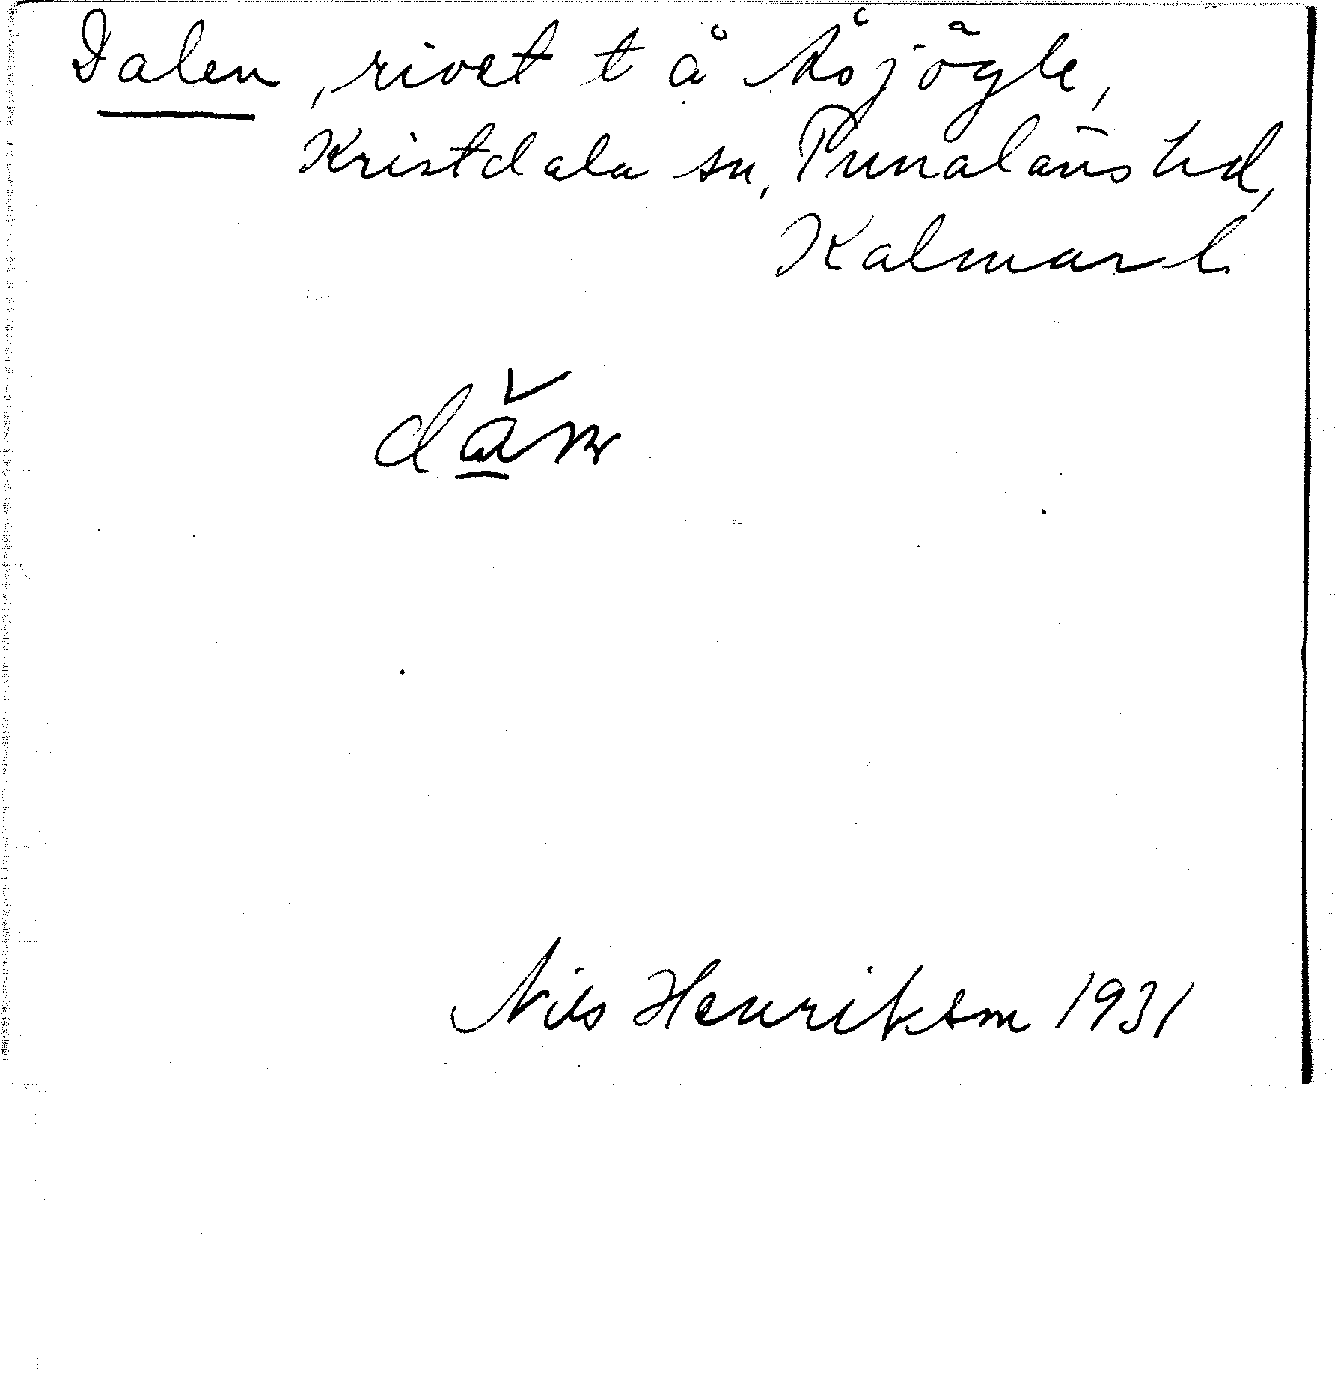 Dalen, rivet t å Åsjögle,
Kristdala sn, Tunaläns hd,
Kalmar l
Nils Henrikson 1931